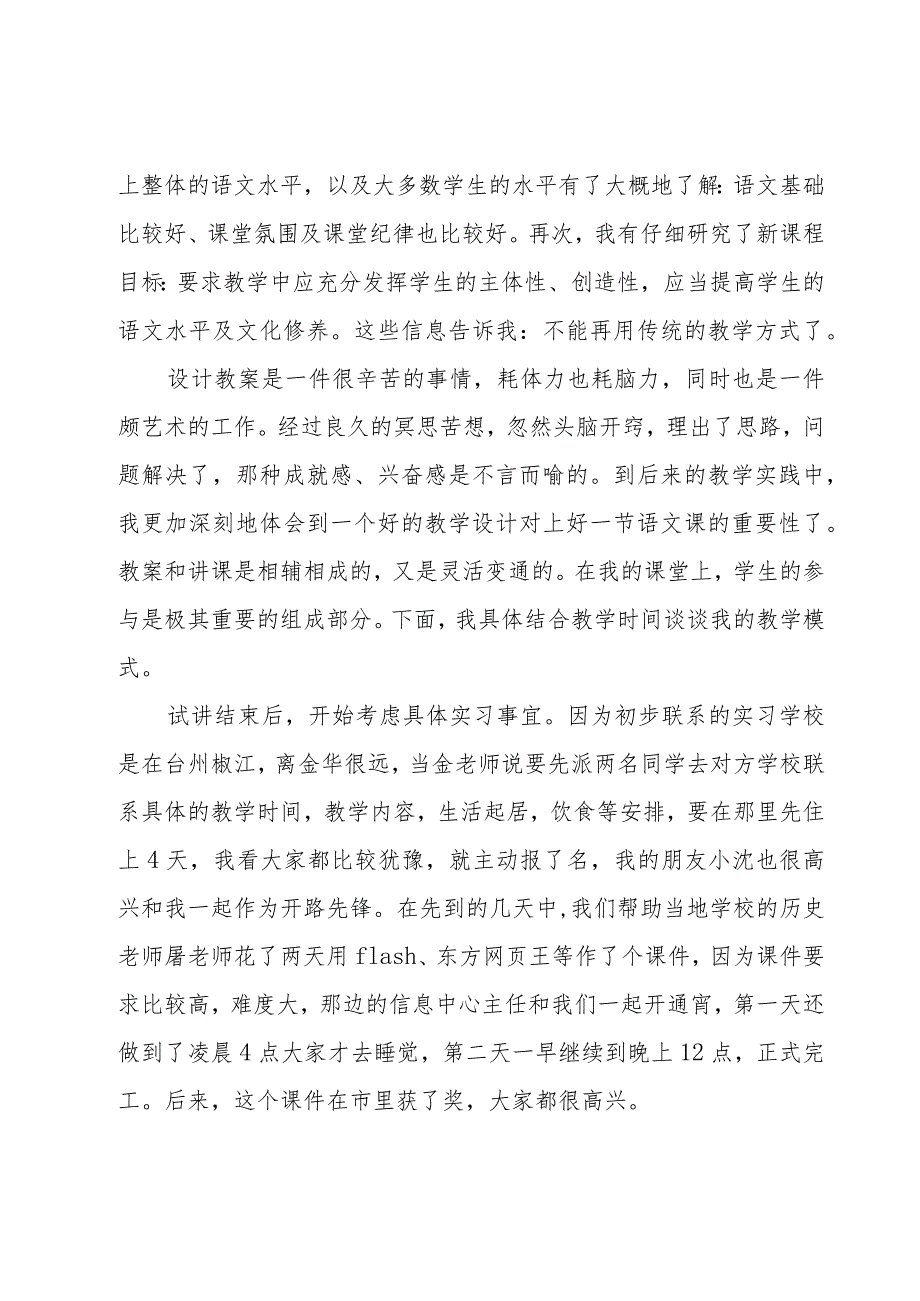 上整体的语文水平，以及大多数学生的水平有了大概地了解：语文基础
比较好、课堂氛围及课堂纪律也比较好。再次，我有仔细研究了新课程
目标：要求教学中应充分发挥学生的主体性、创造性，应当提高学生的
语文水平及文化修养。这些信息告诉我：不能再用传统的教学方式了。
设计教案是一件很辛苦的事情，耗体力也耗脑力，同时也是一件
颇艺术的工作。经过良久的冥思苦想，忽然头脑开窍，理出了思路，问
题解决了，那种成就感、兴奋感是不言而喻的。到后来的教学实践中，
我更加深刻地体会到一个好的教学设计对上好一节语文课的重要性了。
教案和讲课是相辅相成的，又是灵活变通的。在我的课堂上，学生的参
与是极其重要的组成部分。下面，我具体结合教学时间谈谈我的教学模
式。
试讲结束后，开始考虑具体实习事宜。因为初步联系的实习学校
是在台州椒江，离金华很远，当金老师说要先派两名同学去对方学校联
系具体的教学时间，教学内容，生活起居，饮食等安排，要在那里先住
上4天，我看大家都比较犹豫，就主动报了名，我的朋友小沈也很高
兴和我一起作为开路先锋。在先到的几天中,我们帮助当地学校的历史
老师屠老师花了两天用flash、东方网页王等作了个课件，因为课件要
求比较高，难度大，那边的信息中心主任和我们一起开通宵，第一天还
做到了凌晨4点大家才去睡觉，第二天一早继续到晚上12点，正式完
工。后来，这个课件在市里获了奖，大家都很高兴。